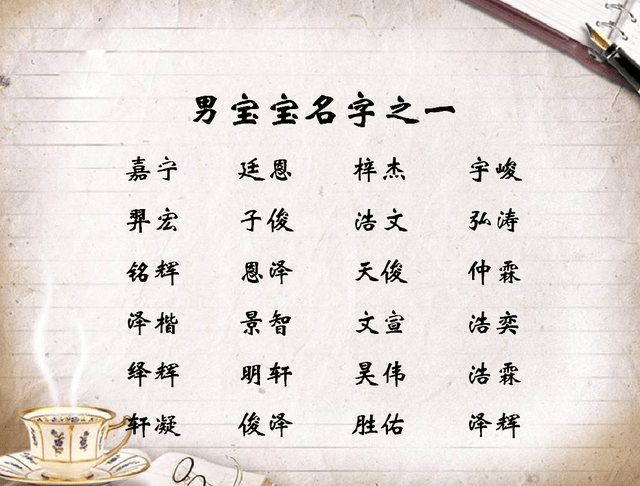 男宝宝名字之一
嘉宁 廷恩 梓杰 宇峻
羿宏 子俊 浩文 弘涛
铭辉 恩泽 天俊 仲霖
泽楷 景智 文宣 浩奕
绎辉 明轩 昊伟 浩霖
轩凝 俊泽 胜佑 泽辉